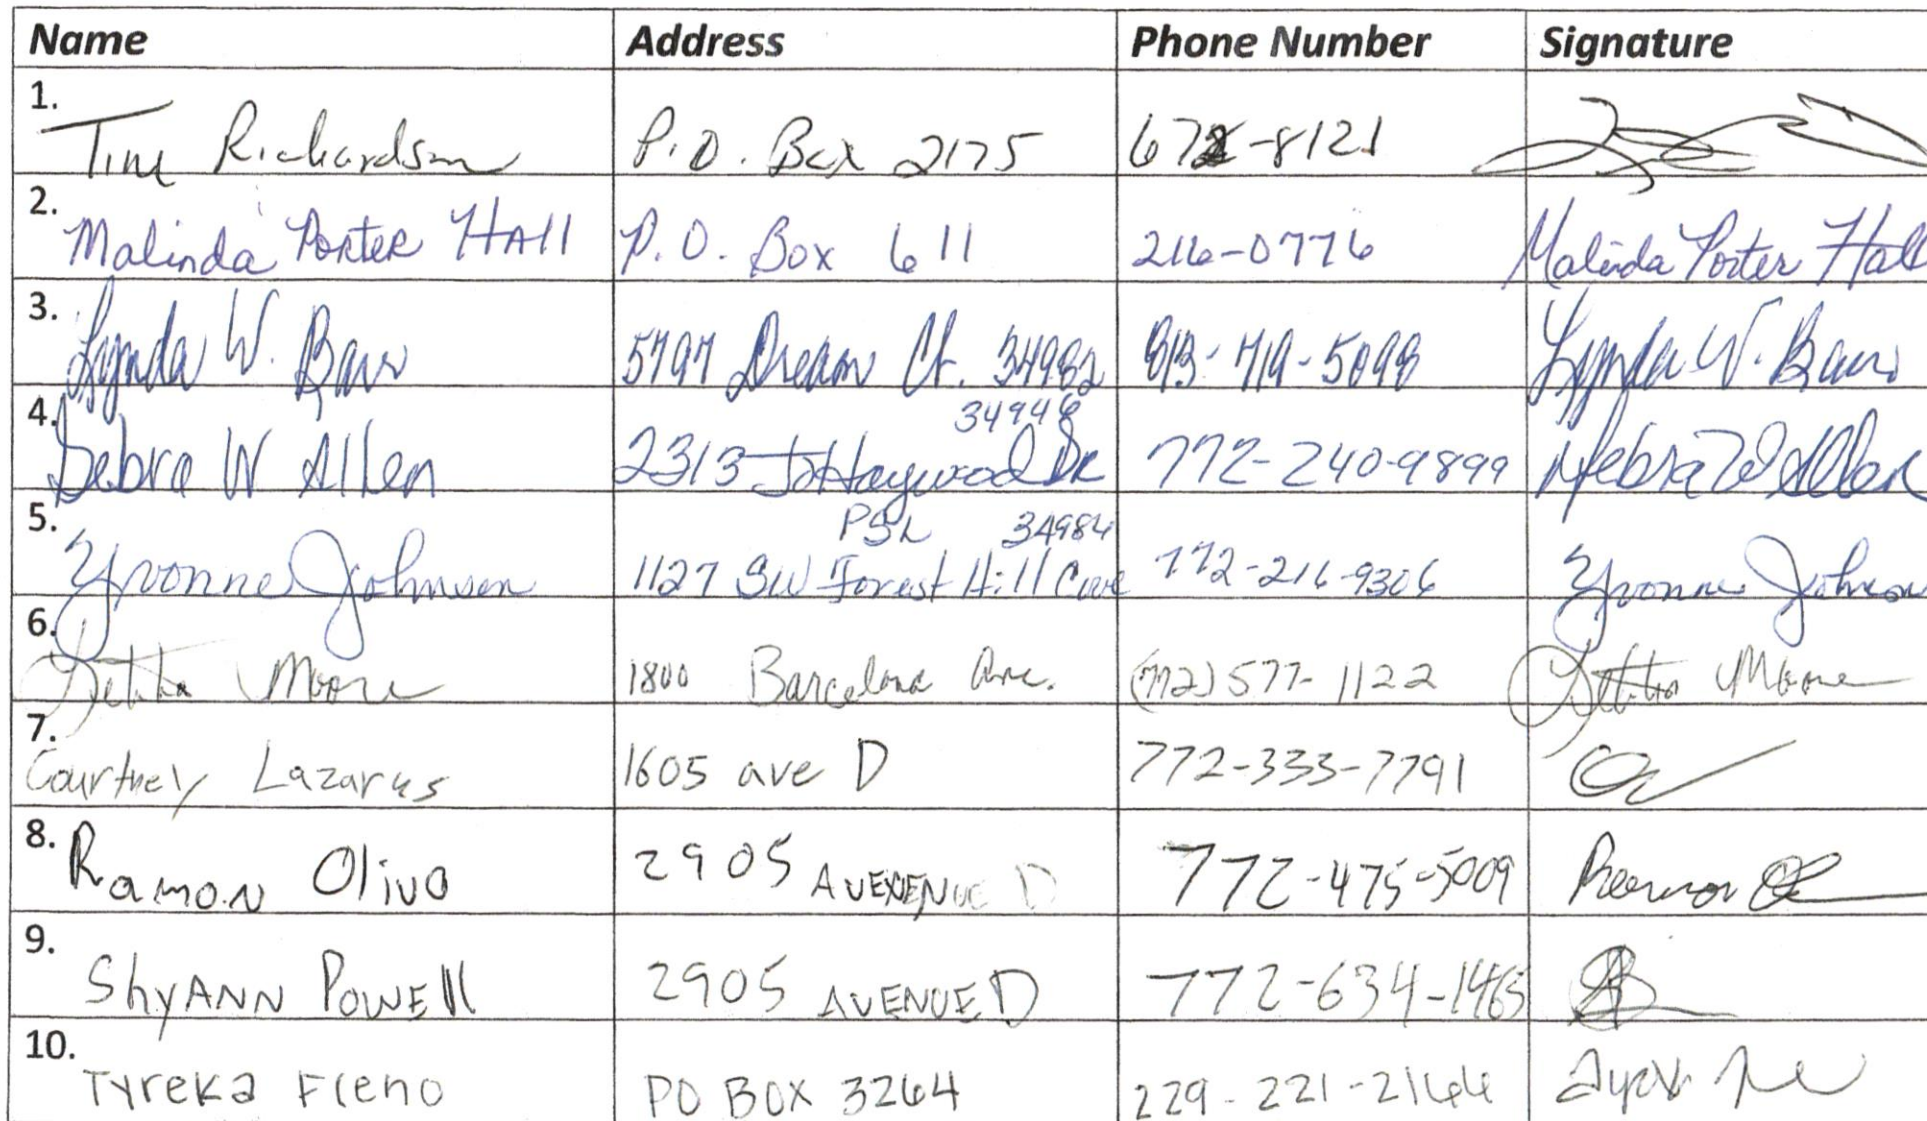 Name Address Phone Number Signature
1. Tim Richardson P.O. Box 2175 672-8121
2. Malinda Porter HAll P.O. Box 611 216-0776 Malinda Porter Hall
3. Lynda W. Barr 5797 Dream Ct. 34982 813-719-5098 Lynda W. Barr
34946
4. Debra W Allen 2313 Haywood Dr 772-240-9899 Debra W Allen
PSL 34984
5. Yvonne Johnson 1127 SW Forest Hill Cove 772-216-9306 Yvonne Johnson
6. Letitia Moore 1800 Barcelona Ave. (772) 577-1122 Letitia Moore
7. Courtney Lazarus 1605 ave D 772-333-7791
8. Ramon Olivo 2905 D 772-475-5009
9. ShyANN POWEll 2905 AVENUE D 772-634-1465
10. Tyreka Fleno PO BOX 3264 229-221-2166